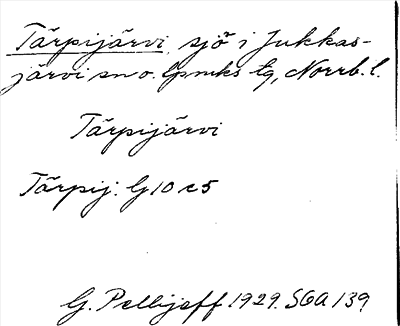 Tärpijärvi, sjö i Jukkas-
järvi sn o. lpmks tg, Norrb. l.
Tärpijärvi
Tärpij: G10 c5
G. Pellijeff 1929. SGA 139